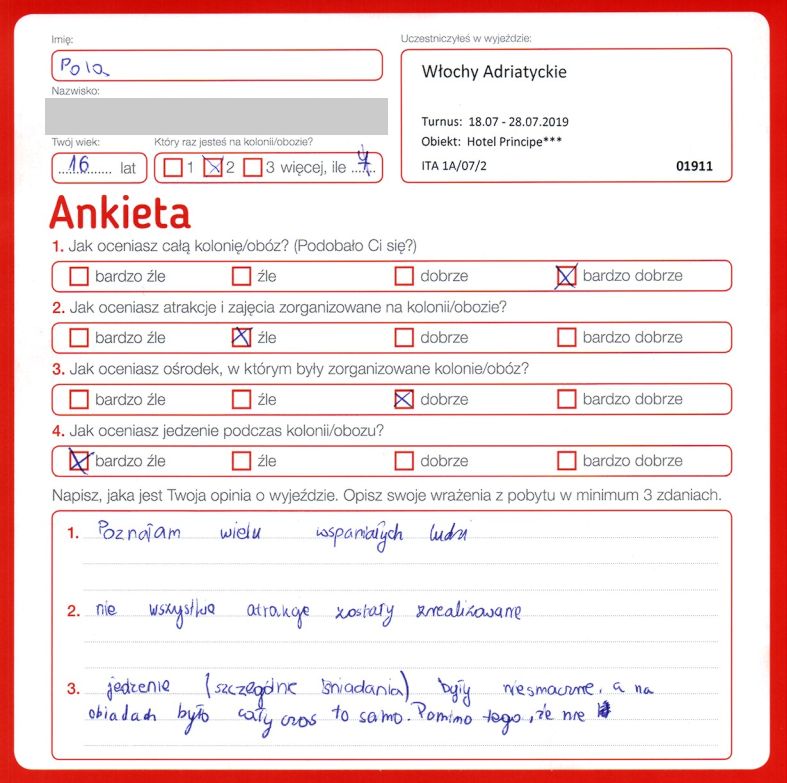 Imię:
Pola
Nazwisko:
Twój wiek:
16 lat
Który raz jesteś na kolonii/obozie?
1 2 3 więcej, ile 4
Uczestniczyłeś w wyjeździe:
Włochy Adriatyckie
Turnus: 18.07 - 28.07.2019
Obiekt: Hotel Principe***
ITA 1A/07/2 01911
Ankieta
1. Jak oceniasz całą kolonię/obóz? (Podobało Ci się?)
bardzo źle źle dobrze bardzo dobrze
2. Jak oceniasz atrakcje i zajęcia zorganizowane na kolonii/obozie?
bardzo źle źle dobrze bardzo dobrze
3. Jak oceniasz ośrodek, w którym były zorganizowane kolonie/obóz?
bardzo źle źle dobrze bardzo dobrze
4. Jak oceniasz jedzenie podczas kolonii/obozu?
bardzo źle źle dobrze bardzo dobrze
Napisz, jaka jest Twoja opinia o wyjeździe. Opisz swoje wrażenia z pobytu w minimum 3 zdaniach.
1. Poznałam wielu wspaniałych ludzi
2. nie wszystkie atrakcje zostały zrealizowane
3. jedzenie (szczególne śniadania) były niesmaczne, a na
obiadach było cały czas to samo. Pomimo tego, że nie